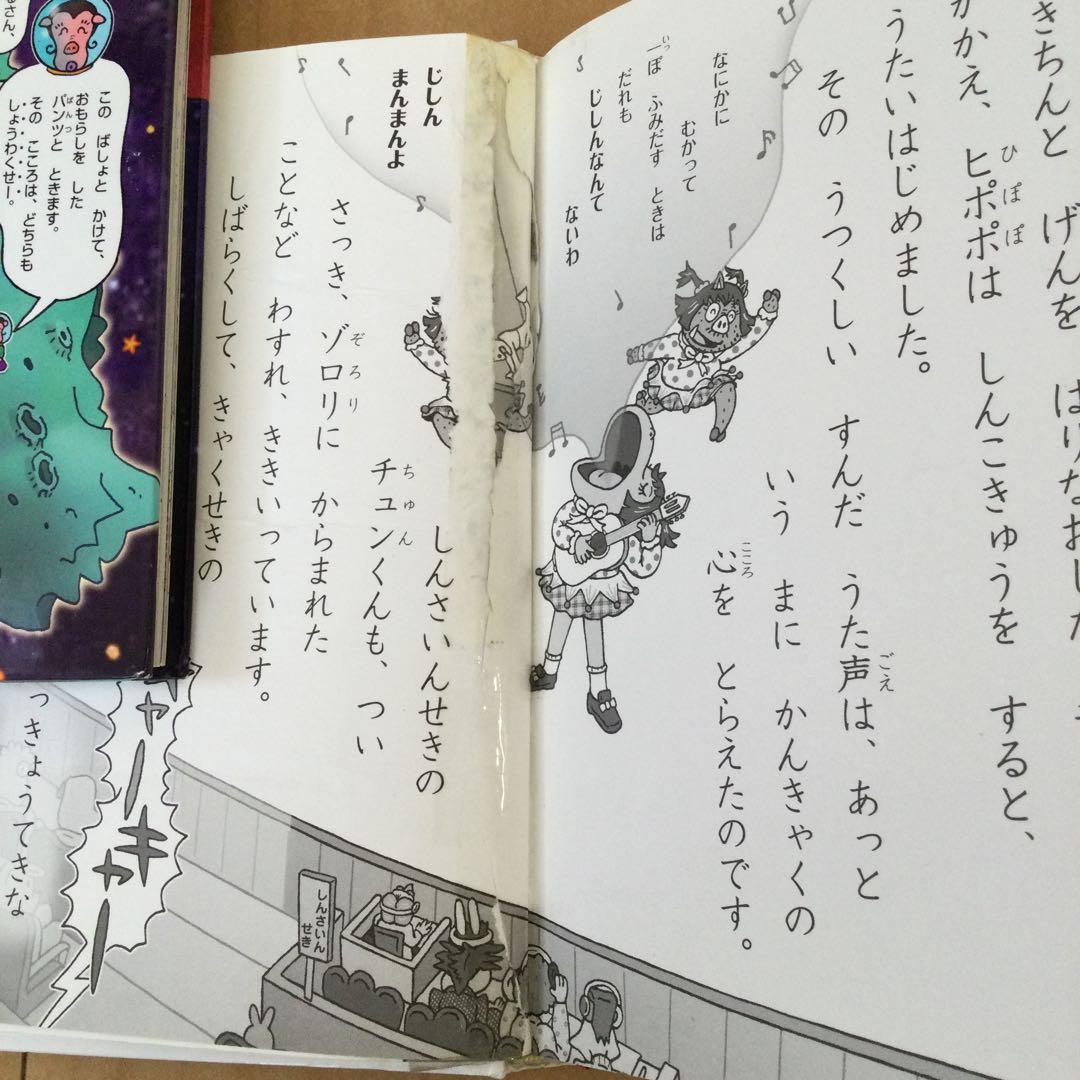 きちんと げんを はりなおした
かかえ、ヒポポは しんこきゅうを すると、
ひぽぽ
うたいはじめました。
その うつくしい すんだ うた声は、あっと
ごえ
いう まに かんきゃくの
心を とらえたのです。
こころ
なにかに
むかって
一ぽ ふみだす ときは
いっ
だれも
じしんなんて
ないわ
じしん
まんまんよ
しんさいんせきの
チュンくんも、つい
ちゅん
さっき、ゾロリに からまれた
ぞろり
ことなど わすれ、ききいっています。
しばらくして、きゃくせきの
っきょうてきな
キャー
しんさいん
せき
るさん、
この ばしょと かけて、
おもらしを した
パンツと ときます。
ぱんつ
その こころは、どちらも
しょうわくせー。